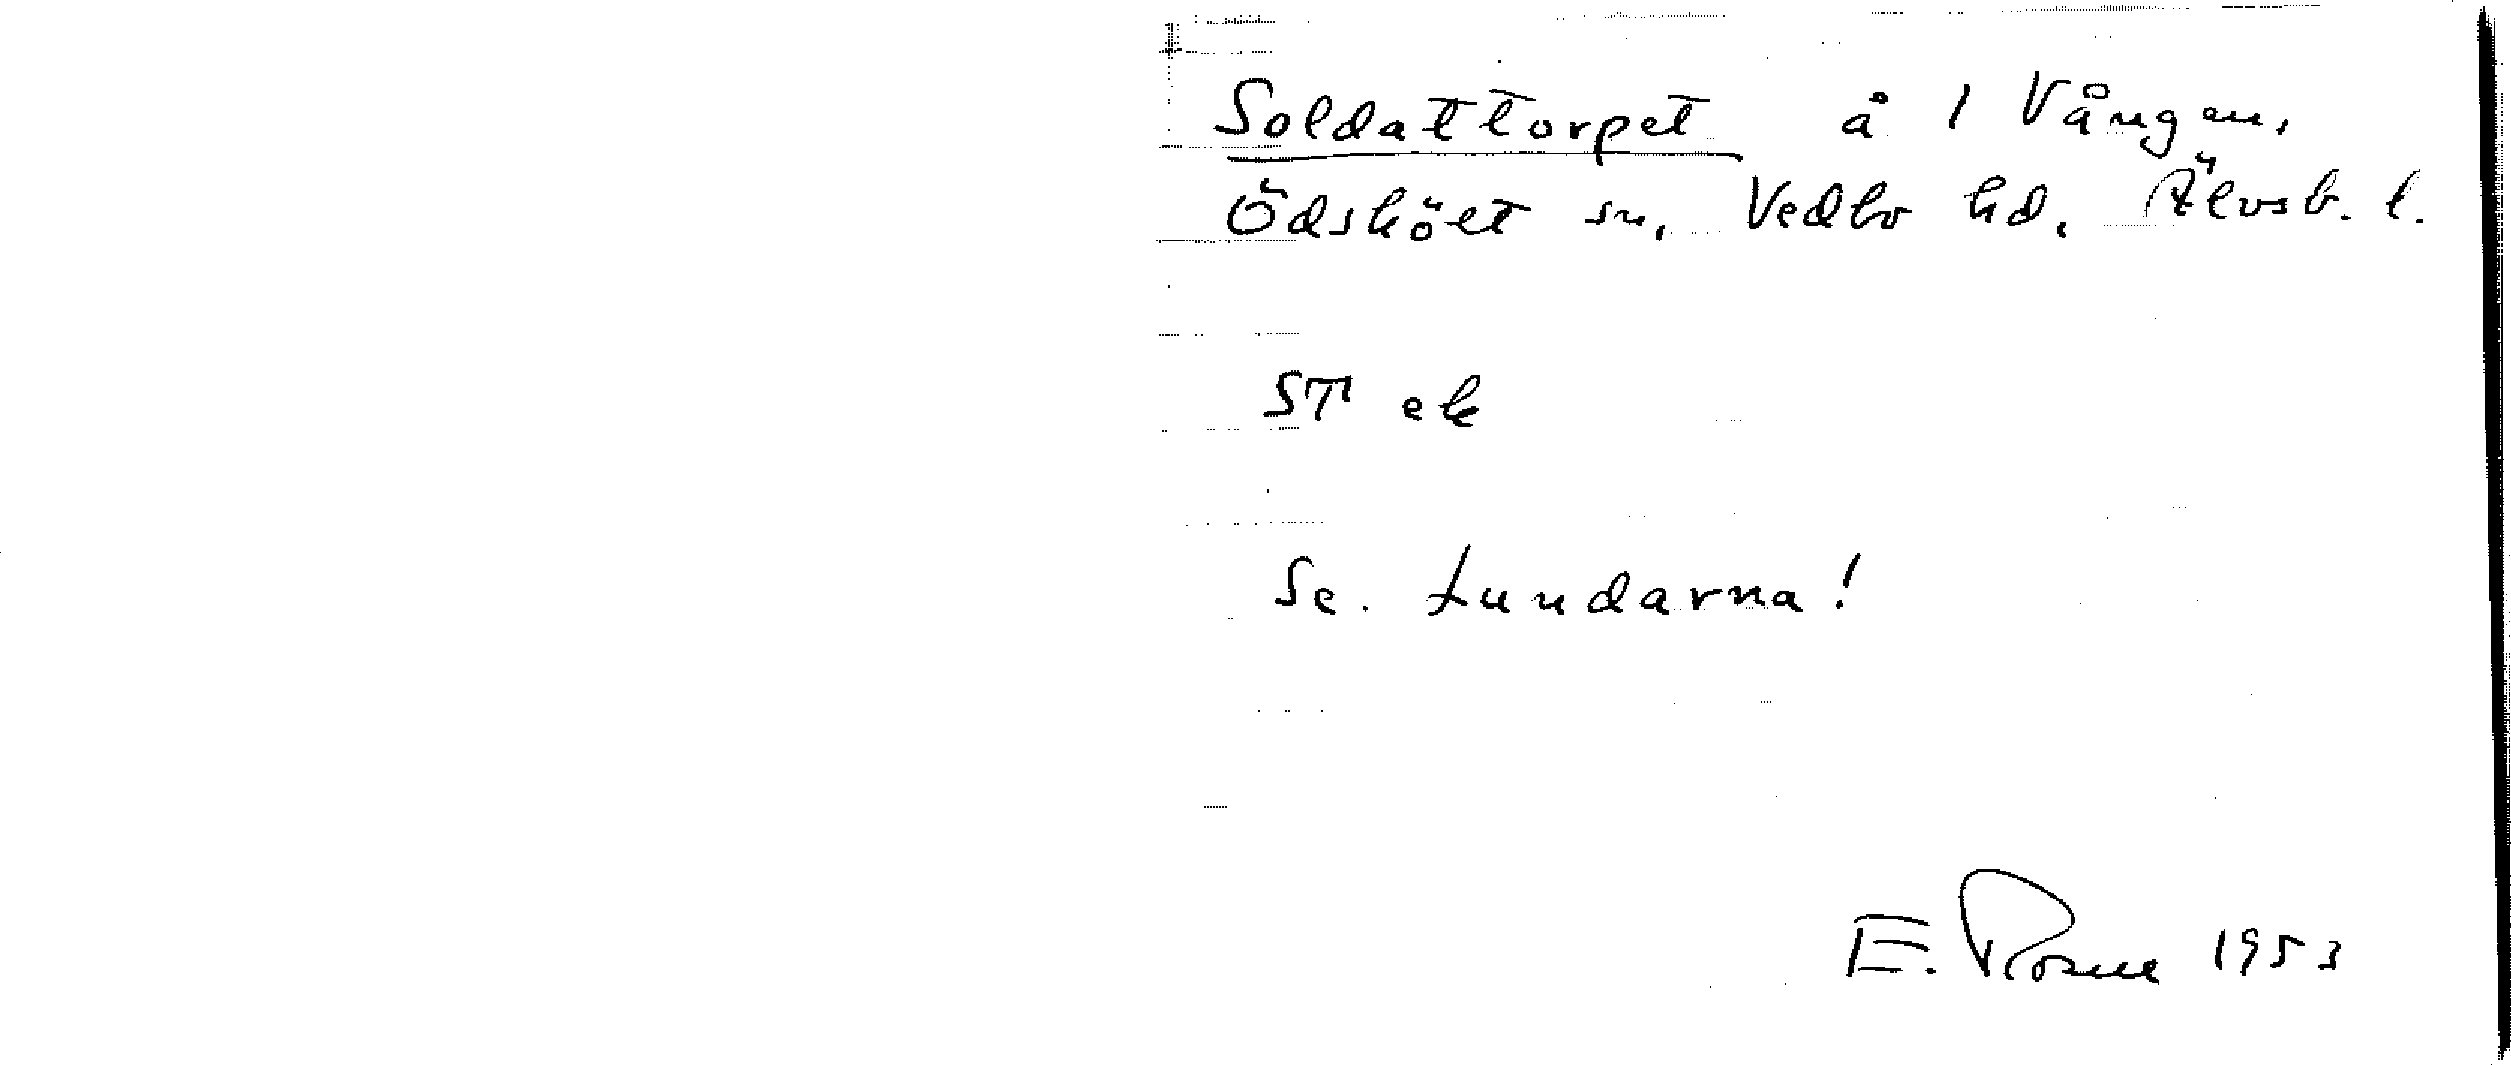 Soldattorpet å 1 Vången,
Ödskölt sn, Vedbo hd, Älvsb. l.
ST ek
Se. Lundarna!
E. 1953